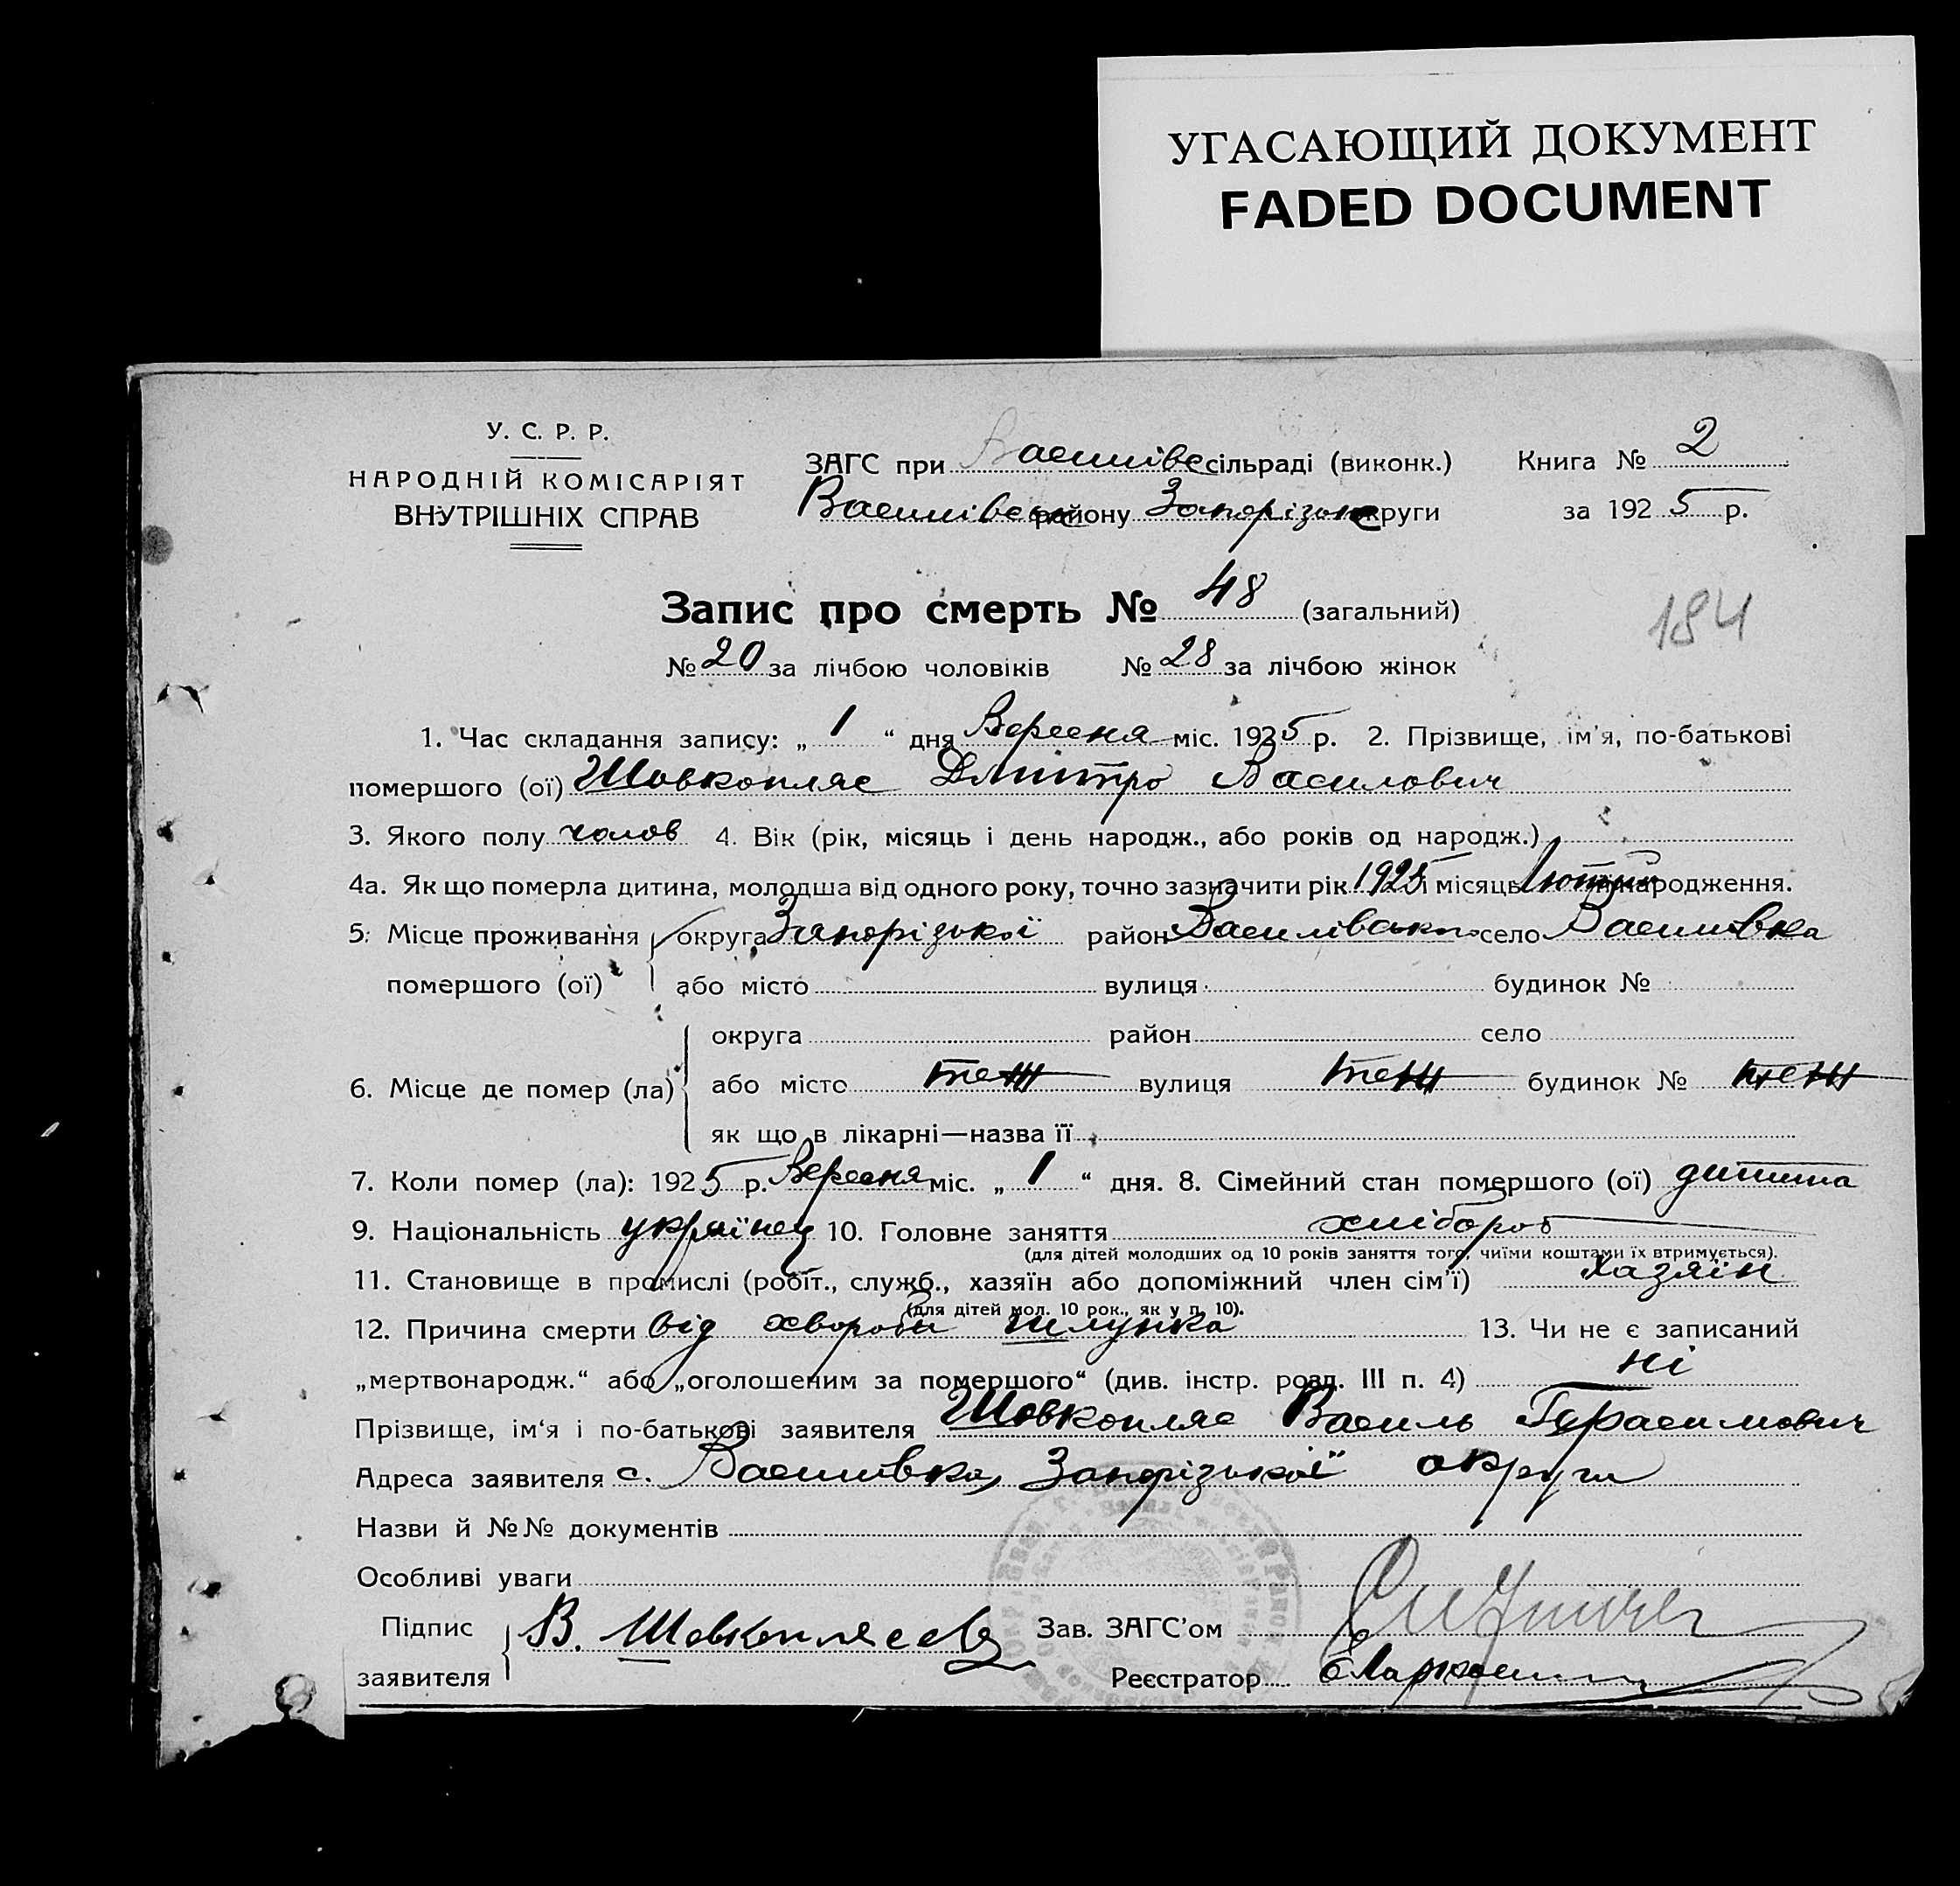 УГАСАЮЩИЙ ДОКУМЕНТ
FADED DOCUMENT
У. С. Р. Р.
НАРОДНІЙ КОМІСАРІЯТ
ВНУТРІШНІХ СПРАВ
ЗАГС при Василівс сільраді (виконк.) Книга № 2
Василівськ району Запорізьк округи за 1925 р.
Запис про смерть № 48 (загальний)
184
№ 20 за лічбою чоловіків № 28 за лічбою жінок
1. Час складання запису: „ 1 “ дня Вересня міс. 1925 р. 2. Прізвище, ім'я, по-батькові
помершого (ої) Шовкопляс Дмитро Василович
3. Якого полу чолов 4. Вік (рік, місяць і день народж., або років од народж.)
4а. Як що померла дитина, молодша від одного року, точно зазначити рік 1925 і місяць Лютий народження.
5. Місце проживання округа Запорізької район Василівськ село Василівка
помершого (ої) або місто вулиця будинок №
округа район село
6. Місце де помер (ла) або місто теж вулиця теж будинок № теж
як що в лікарні—назва її
7. Коли помер (ла): 1925 р. Вересня міс. „ 1 “ дня. 8. Сімейний стан помершого (ої) дитина
9. Національність українец 10. Головне заняття хлібороб
(для дітей молодших од 10 років заняття того, чиїми коштами їх втримується).
11. Становище в промислі (робіт., служб., хазяїн або допоміжний член сім'ї) Хазяїн
(для дітей мол. 10 рок., як у п. 10).
12. Причина смерти від хвороби шлунка 13. Чи не є записаний
„мертвонародж.“ або „оголошеним за помершого“ (див. інстр. розд. III п. 4) ні
Прізвище, ім'я і по-батькові заявителя Шовкопляс Василь Герасимович
Адреса заявителя с. Василівка, Запорізької округи
Назви й №№ документів
Особливі уваги
Підпис В. Шовкопляс Зав. ЗАГС'ом
заявителя Реєстратор